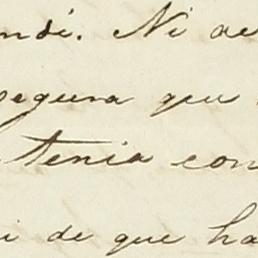 ndi. Ni de
segura que
tenia con
i de que ha